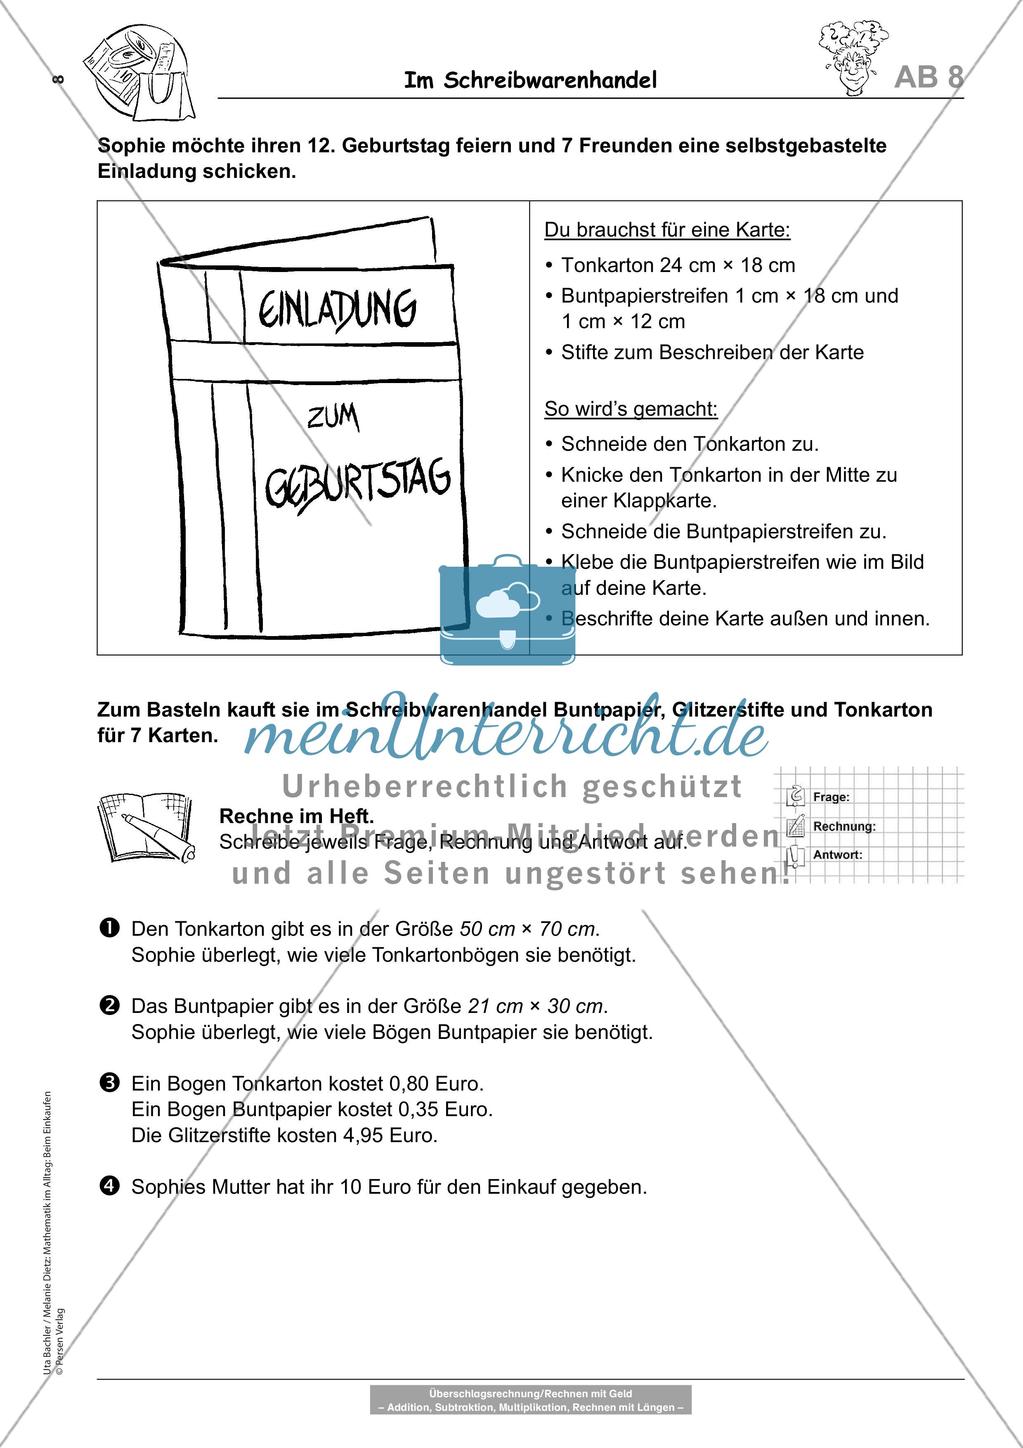 8
Im Schreibwarenhandel
AB 8
Sophie möchte ihren 12. Geburtstag feiern und 7 Freunden eine selbstgebastelte
Einladung schicken.
EINLADUNG
ZUM
GEBURTSTAG
Du brauchst für eine Karte:
• Tonkarton 24 cm × 18 cm
• Buntpapierstreifen 1 cm × 18 cm und
1 cm × 12 cm
• Stifte zum Beschreiben der Karte
So wird’s gemacht:
• Schneide den Tonkarton zu.
• Knicke den Tonkarton in der Mitte zu
einer Klappkarte.
• Schneide die Buntpapierstreifen zu.
• Klebe die Buntpapierstreifen wie im Bild
auf deine Karte.
• Beschrifte deine Karte außen und innen.
Zum Basteln kauft sie im Schreibwarenhandel Buntpapier, Glitzerstifte und Tonkarton
für 7 Karten.
meinUnterricht.de
Urheberrechtlich geschützt
Jetzt Premium-Mitglied werden
und alle Seiten ungestört sehen!
Rechne im Heft.
Schreibe jeweils Frage, Rechnung und Antwort auf.
Frage:
Rechnung:
Antwort:
1 Den Tonkarton gibt es in der Größe 50 cm × 70 cm.
Sophie überlegt, wie viele Tonkartonbögen sie benötigt.
2 Das Buntpapier gibt es in der Größe 21 cm × 30 cm.
Sophie überlegt, wie viele Bögen Buntpapier sie benötigt.
3 Ein Bogen Tonkarton kostet 0,80 Euro.
Ein Bogen Buntpapier kostet 0,35 Euro.
Die Glitzerstifte kosten 4,95 Euro.
4 Sophies Mutter hat ihr 10 Euro für den Einkauf gegeben.
Uta Bachler / Melanie Dietz: Mathematik im Alltag: Beim Einkaufen
© Persen Verlag
Überschlagsrechnung/Rechnen mit Geld
– Addition, Subtraktion, Multiplikation, Rechnen mit Längen –